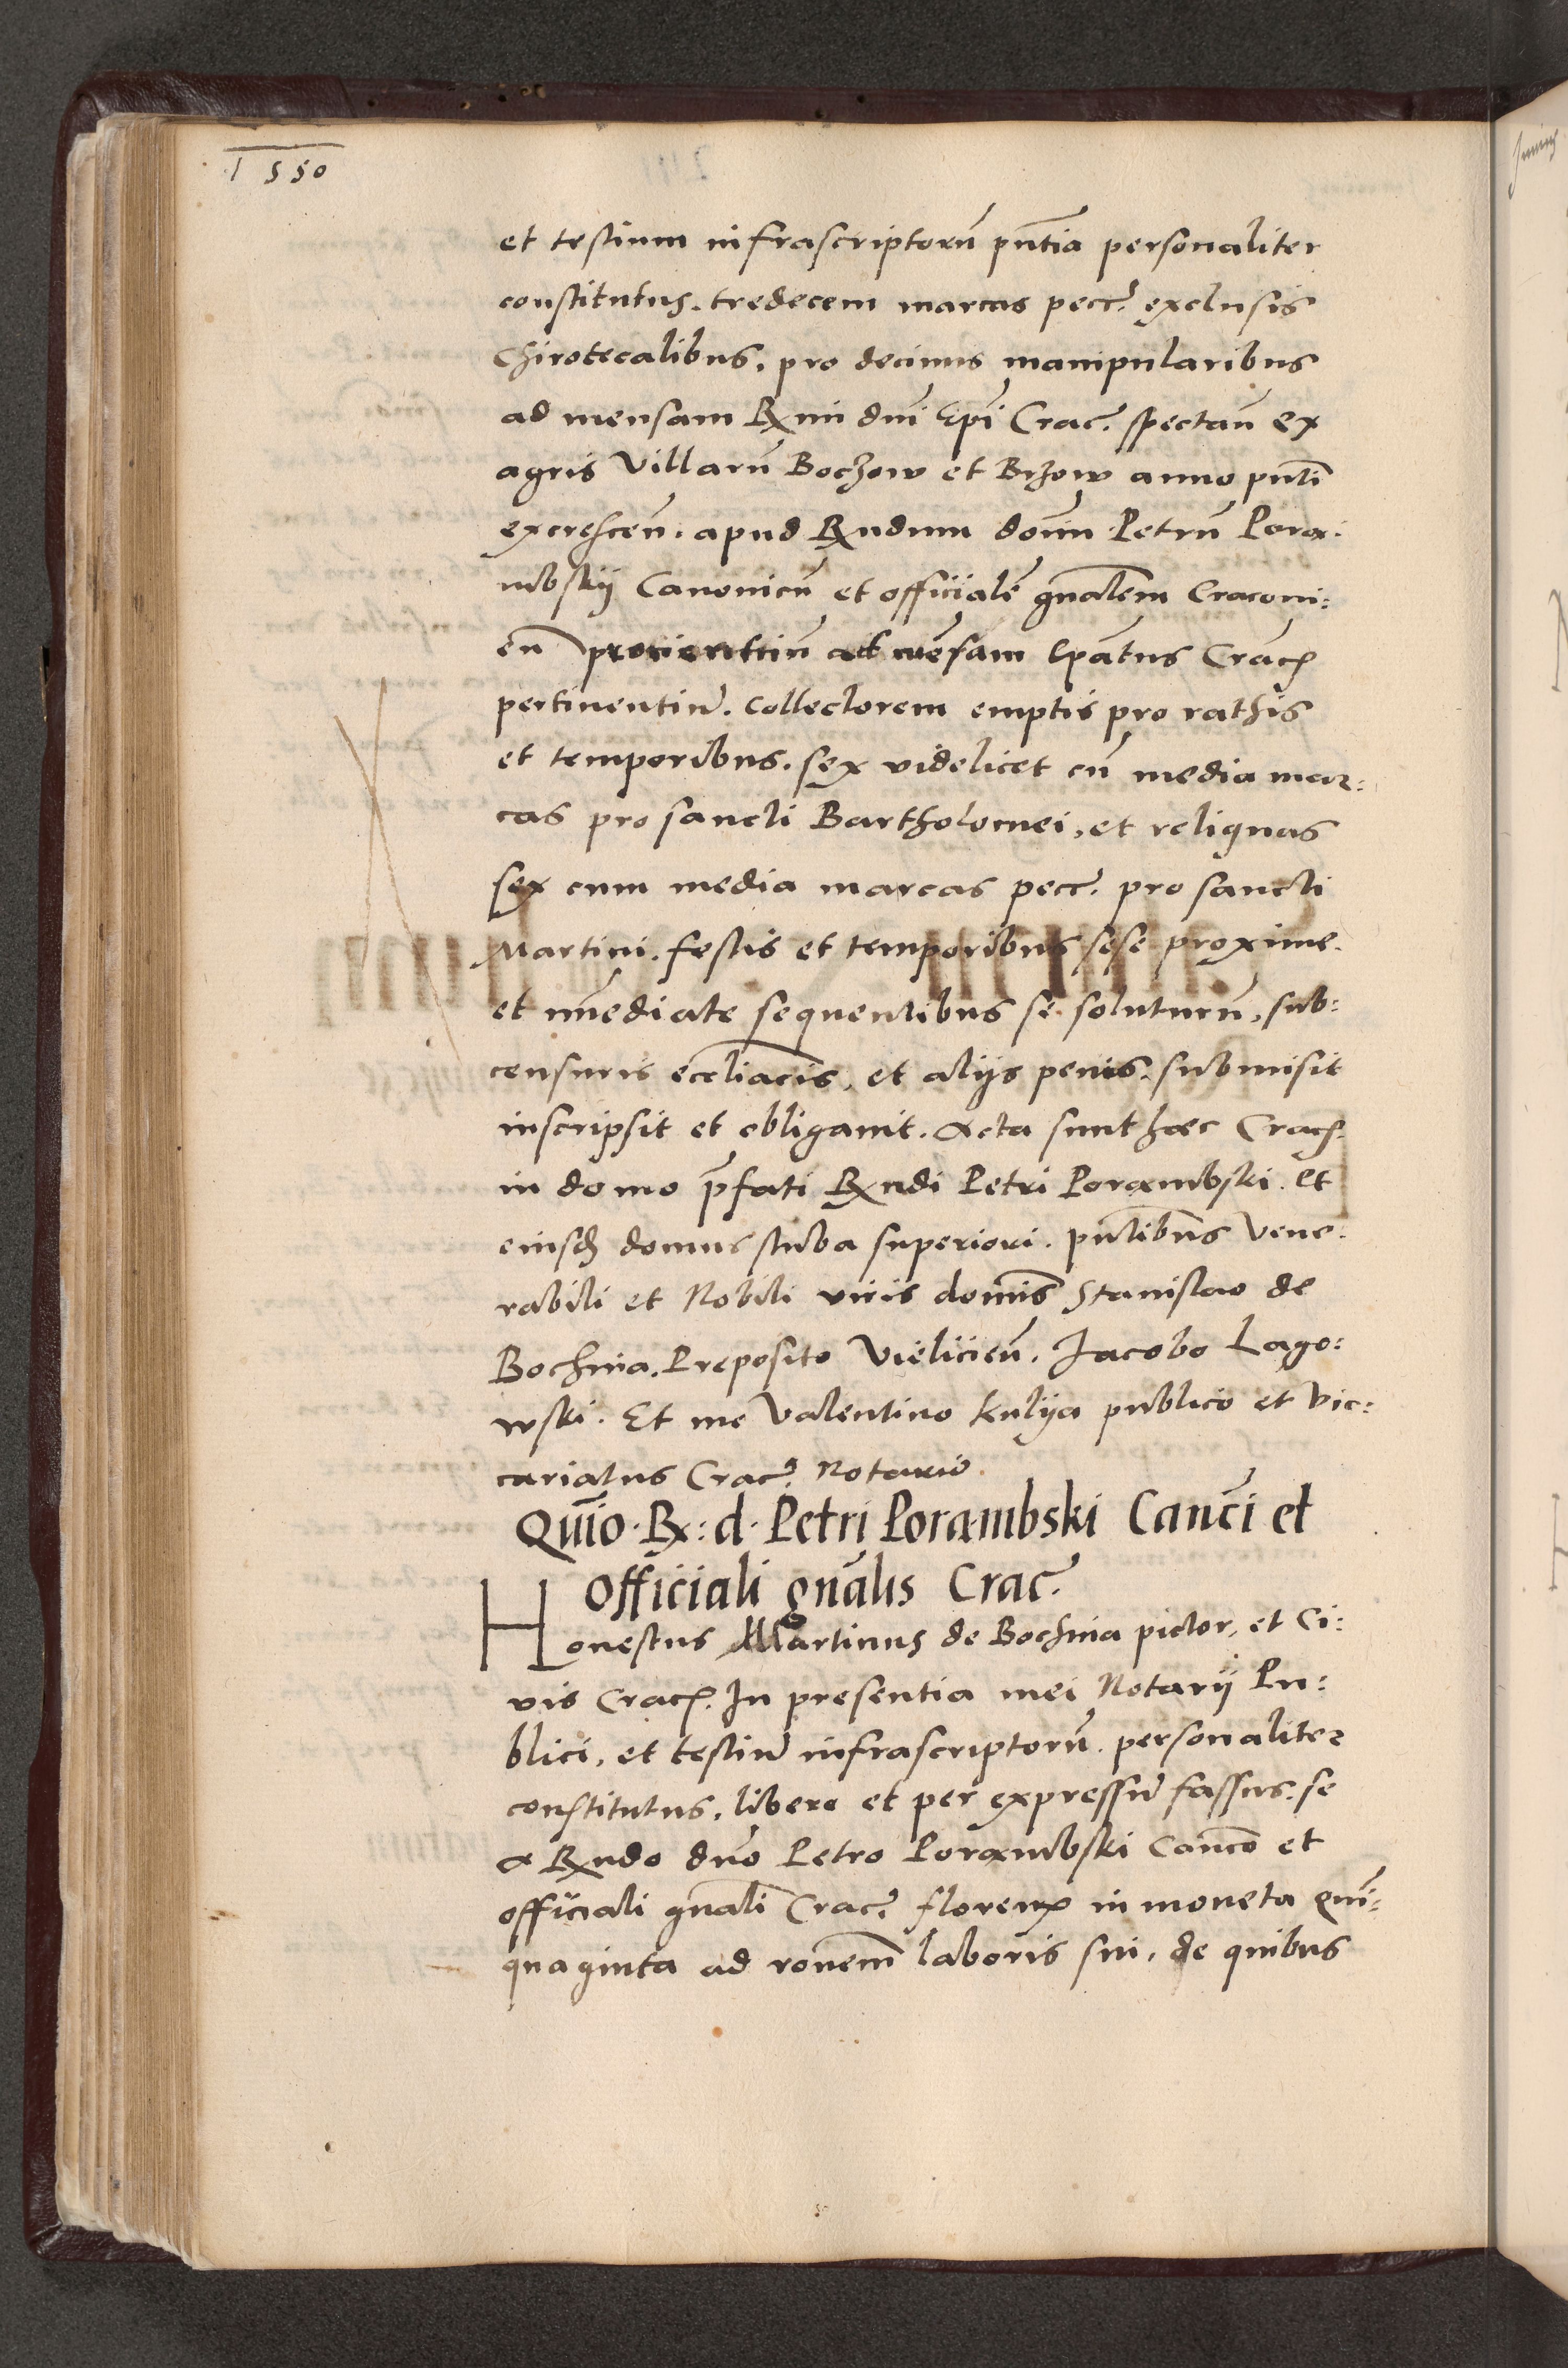 1550
et testium infrascriptorū pn̄tia personaliter
constitutus. tredecem marcas pecc. exclusis
Chirotecalibus. pro decimis manipularibus
ad mensam Rxmi dn̄i Ep̄i Crac. spectan̄ ex
agris Villarū Boczow et Brzow anno pn̄ti
excrescen̄. apud Rxndum dom̄ Petrū Pora:
mbskij Canonicū et officialē gn̄alem Cracoui:
en̄ prouentuū ad mēsam Ep̄atus Crac̄
pertinentiū. Collectorem emptis pro rathis
et temporibus. sex videlicet cū media mar:
cas pro sancti Bartholomei, et reliquas
sex cum media marcas pecc. pro sancti
Martini. festis et temporibus sese proxime.
et im̄ediate sequentibus se soluturū, sub:
censuris eccl̄iacis, et alijs penis. submisit
inscripsit et obligauit. Acta sunt haec Crac.
in domo p̄fati Rxndi Petri Porambski. et
eiusdȩ domus stuba superiori. pn̄tibus Vene:
rabili et Nobili viris dominis Stanislao de
Bochnia. Preposito Vieliciēn. Jacobo Lago:
wski. Et me Valentino Kulija publico et Vic:
cariatus Crac. Notario.
Quīo. Rx: d. Petri Porambski Canc̄i et
Officiali gn̄alis Crac.
Honestus Martinus de Bochnia pictor, et Ci:
uis Crac. In presentia mei Notarij Pu:
blici, et testiū infrascriptorū. personaliter
constitutus, libere et per expressū fassus. se
a Rxndo dn̄o Petro Porambski Canc̄o et
officiali gn̄ali Crac. floren̄ in moneta Qui:
quaginta ad rōnem laboris sui, de quibus